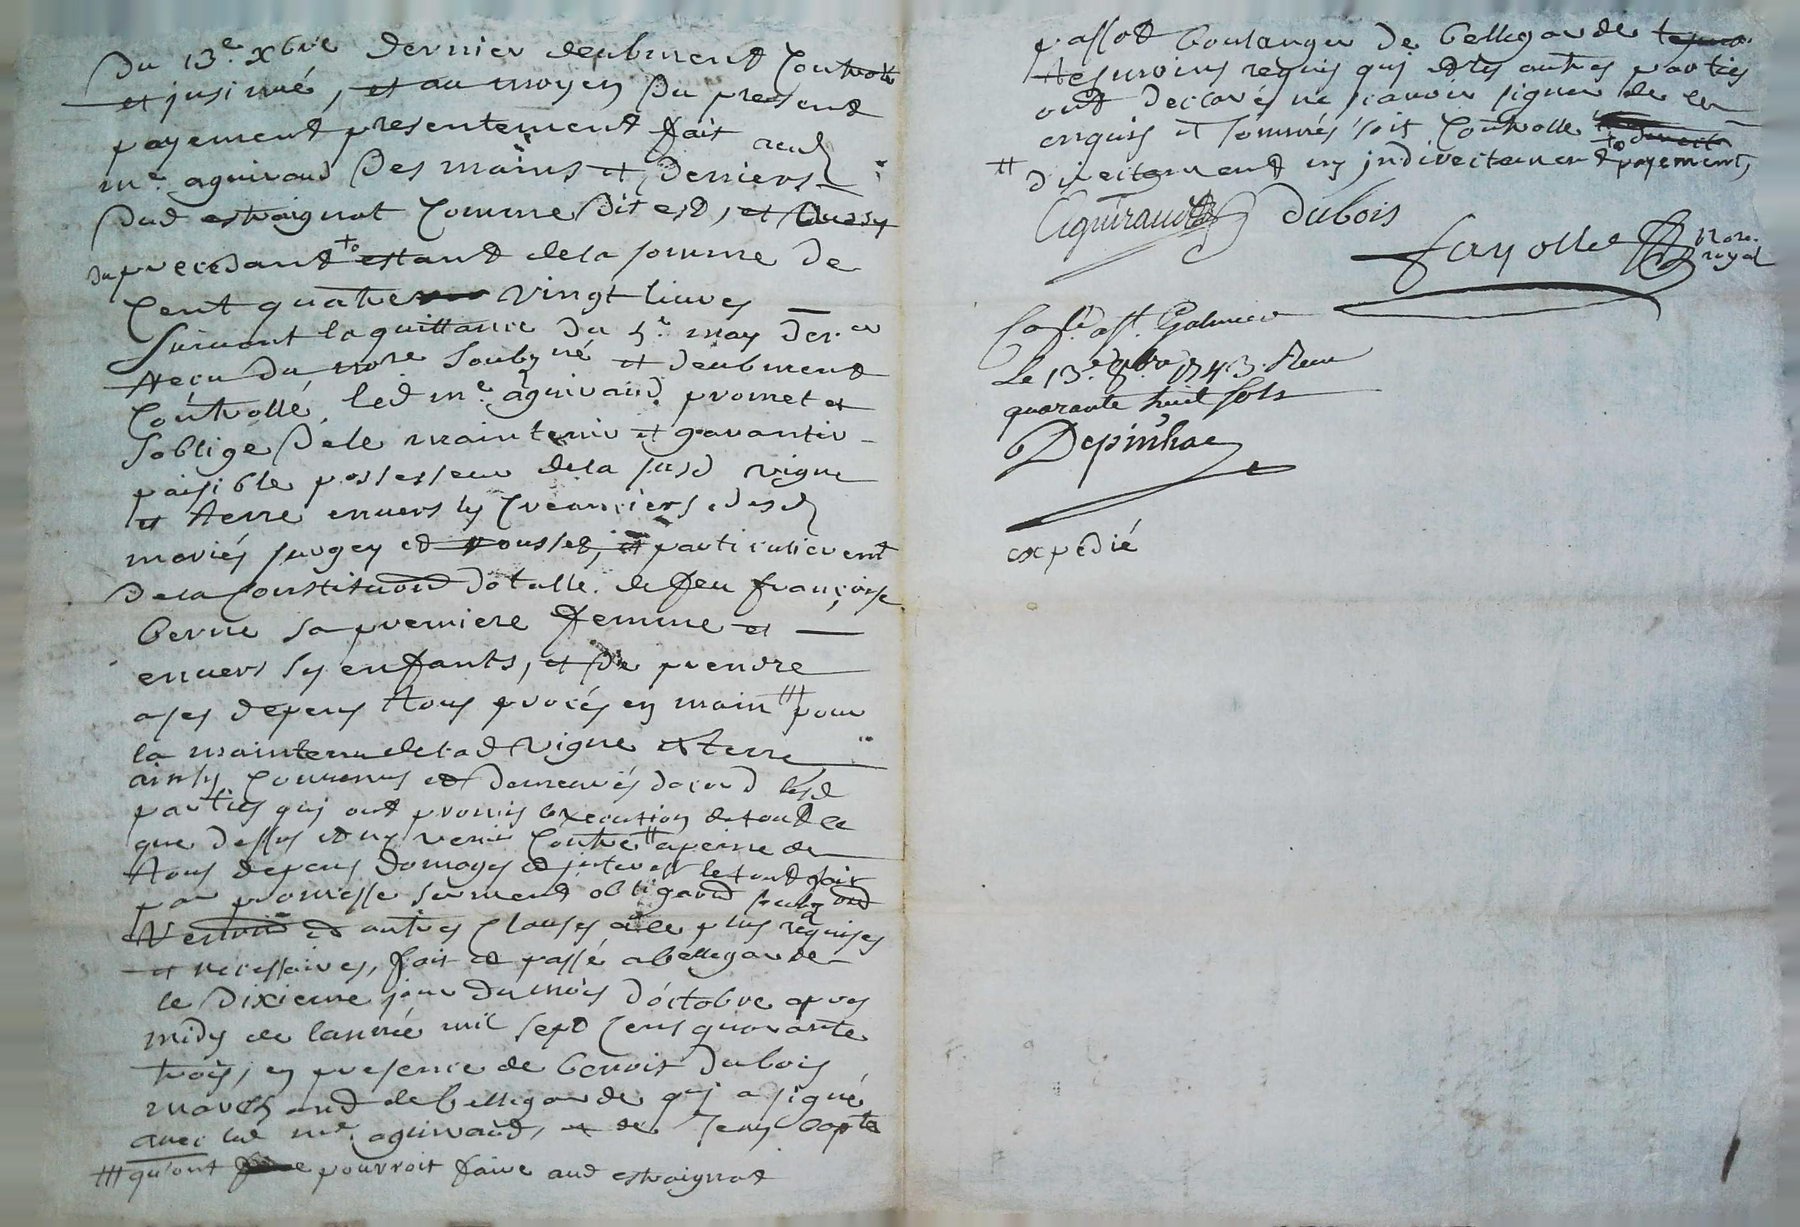 Du 13e. xbre dernier deubment Controllé
et insinué, et au moyen du present
payement presentement fait aud
me. aguiraud Des mains et Deniers
Dud estraignat Comme Dit est, et aussy
du precedant +o estant de la somme De
Cent quatre vingt livres
Suivant la quittance du 5e. may der.er
Reçu du nore soubsné et deubment
Controllé, led me. aguiraud promet et
soblige De le maintenir et garantir
paisible possesseur de la susd vigne
et terre envers les Creanciers desd
mariés furgey et rousset, et particulierent
De la Constituon dotalle de feu françoise
berne sa premiere femme et
envers ses enfants, et De prendre
a ses depens tous procés en main ⧻ pour
la maintenue de lad vigne et terre
ainsy Convenus et demeurés dacord lesd
parties qui ont promis lexecution de tout ce
que dessus et ny venir Contre # a peine de
tous depens domages et interest le tout fait
par promesse serment obligaon soubz on
Renon et autres Clauses a ce plus requises
et necessaires, fait et passé a bellegarde
le Dixieme jour du mois d'octobre apres
midy de lanné mil sept Cens quarante
trois, en presence de benoit Dubois
marchand de bellegarde qui a signé
avec led me. aguiraud, et de Jean bapte
⧻ qu'ont pourroit faire aud estraignat
passot boulanger de bellegarde
tesmoins requis qui et les autres parties
ont declarés ne scavoir signer de ce
enquis et sommés soit Controllé
# directement ny indirectement +o payement,
Aguiraud Dubois
fayolle nore. royal
Coll.é a st. Galmier
Le 13e. 8bre 1743. Reçu
quarante huit sols
Depinhac
expedié